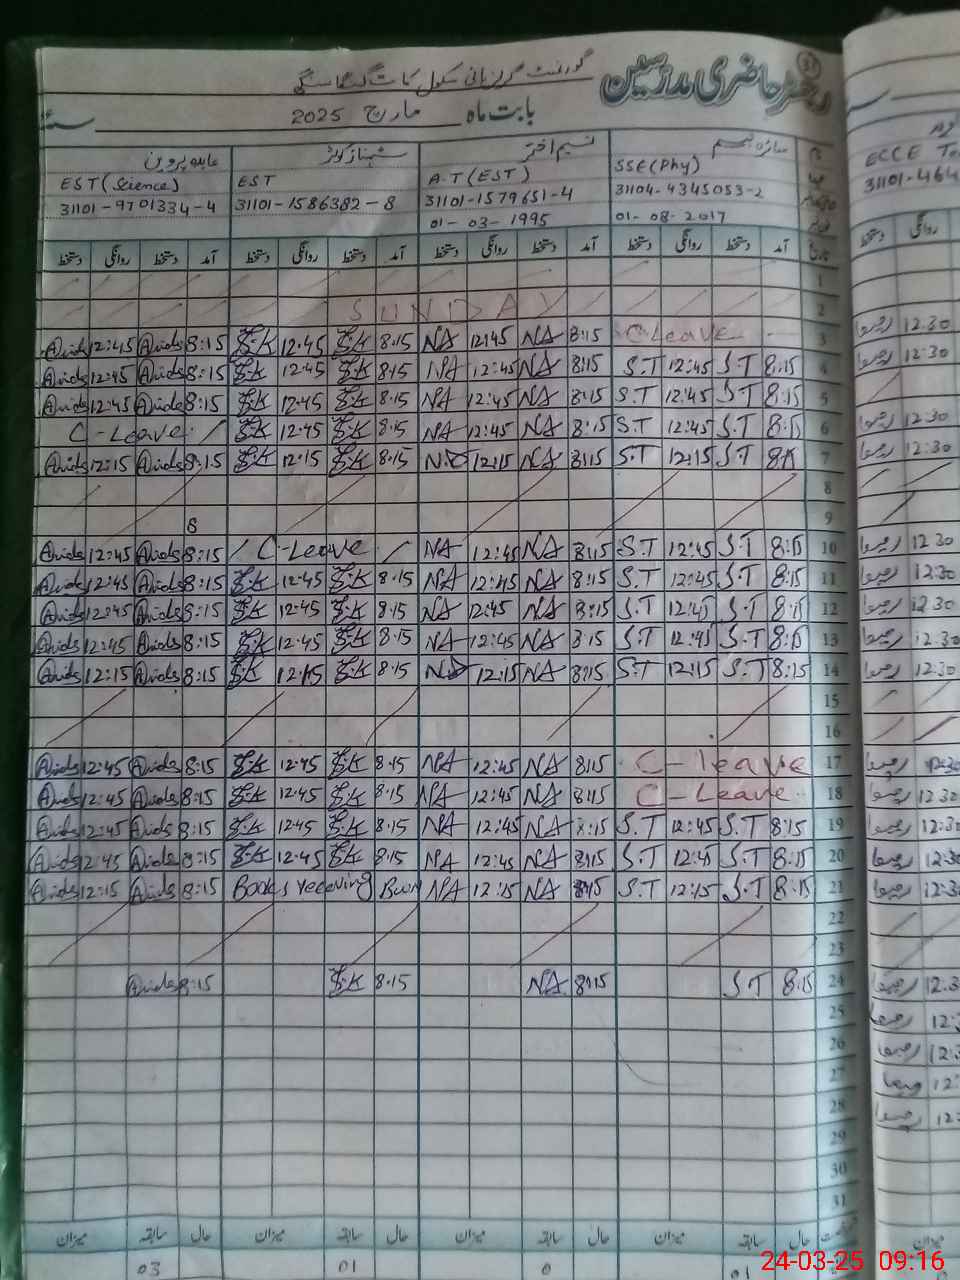 رجسٹر حاضری مدرسین 31
گورنمنٹ گرلز ہائی سکول
بابت ماہ مارچ 2025
عابدہ پروین شہناز کوثر نسیم اختر سائرہ تبسم
EST (Science) EST A.T (EST) SSE (Phy) ECCE
31101-9701334-4 31101-1586382-8 31101-1579651-4 31104-4345053-2 31101-464
01-03-1995 01-08-2017
دستخط روانگی دستخط آمد دستخط روانگی دستخط آمد دستخط روانگی دستخط آمد دستخط روانگی دستخط آمد تاریخ دستخط روانگی
1
SUNDAY 2
Abids 12:45 Abids 8:15 S.K 12.45 S.K 8.15 NA 12:45 NA 8:15 C-Leave 3 12.30
Abids 12:45 Abids 8:15 S.K 12.45 S.K 8.15 NA 12:45 NA 8:15 S.T 12:45 S.T 8:15 4 12:30
Abids 12:45 Abids 8:15 S.K 12.45 S.K 8.15 NA 12:45 NA 8:15 S.T 12:45 S.T 8:15 5
C-Leave S.K 12.45 S.K 8.15 NA 12:45 NA 8:15 S.T 12:45 S.T 8:15 6 12:30
Abids 12:15 Abids 8:15 S.K 12.15 S.K 8.15 NA 12:15 NA 8:15 S.T 12:15 S.T 8:15 7 12:30
8
8 9
Abids 12:45 Abids 8:15 C-Leave NA 12:45 NA 8:15 S.T 12:45 S.T 8:15 10 12 30
Abids 12:45 Abids 8:15 S.K 12.45 S.K 8.15 NA 12:45 NA 8:15 S.T 12:45 S.T 8:15 11 12:30
Abids 12:45 Abids 8:15 S.K 12.45 S.K 8.15 NA 12:45 NA 8:15 S.T 12:45 S.T 8:15 12 12 30
Abids 12:45 Abids 8:15 S.K 12.45 S.K 8.15 NA 12:45 NA 8:15 S.T 12:45 S.T 8:15 13 12.30
Abids 12:15 Abids 8:15 S.K 12.15 S.K 8.15 NA 12:15 NA 8:15 S.T 12:15 S.T 8:15 14 12:30
15
16
Abids 12:45 Abids 8:15 S.K 12.45 S.K 8.15 NA 12:45 NA 8:15 C-leave 17 12:30
Abids 12:45 Abids 8:15 S.K 12.45 S.K 8.15 NA 12:45 NA 8:15 C-Leave 18 12 30
Abids 12:45 Abids 8:15 S.K 12.45 S.K 8.15 NA 12:45 NA 8:15 S.T 12:45 S.T 8:15 19 12:30
Abids 12:45 Abids 8:15 S.K 12.45 S.K 8.15 NA 12:45 NA 8:15 S.T 12:45 S.T 8:15 20 12:30
Abids 12:15 Abids 8:15 Books receiving NA 12:15 NA 8:15 S.T 12:15 S.T 8:15 21 12:30
22
23
Abids 8:15 S.K 8.15 NA 8:15 S.T 8:15 24 12.3
25 12:
26 12:3
27 12:
28 12:
29
30
31
میزان سابقہ حال میزان سابقہ حال میزان سابقہ حال میزان سابقہ حال میزان
03 01 0 01
24-03-25 09:16